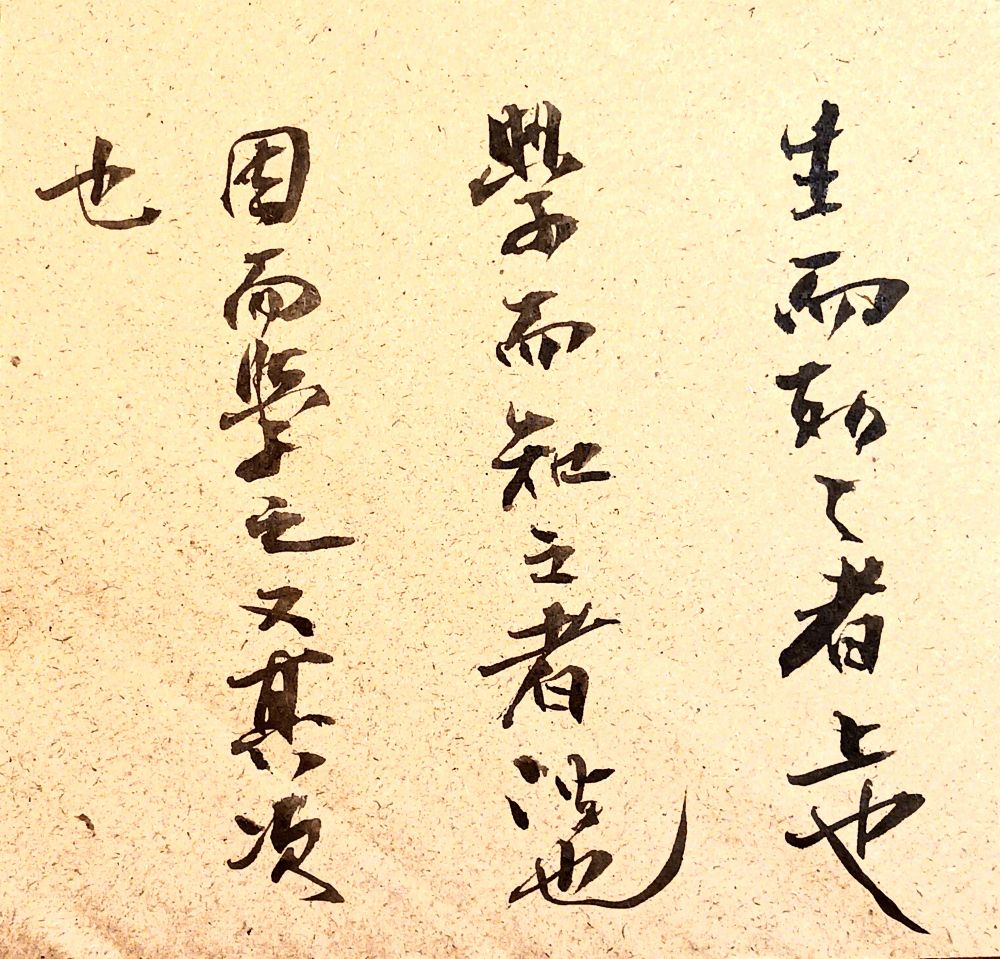 生而知之者上也
學而知之者次也
困而學之又其次
也